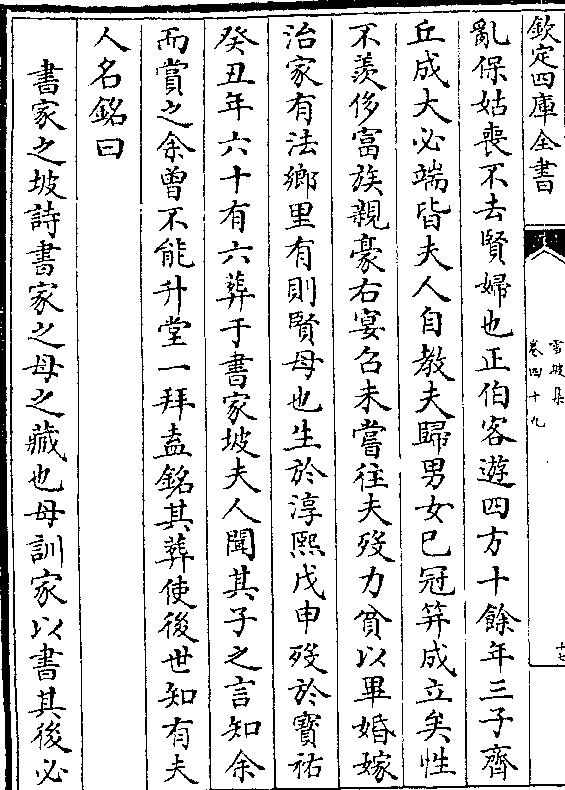 欽定四庫全書
雪坡集
卷四十九
十七
亂保姑喪不去賢婦也正伯客遊四方十餘年三子齊
丘成大必端皆夫人自教夫歸男女已冠笄成立矣性
不羨侈富族親豪右宴召未嘗往夫歿力貧以畢婚嫁
治家有法鄉里有則賢母也生於淳熙戊申歿於寳祐
癸丑年六十有六葬于書家坡夫人聞其子之言知余
而賞之余曾不能升堂一拜盍銘其葬使後世知有夫
人名銘曰
書家之坡詩書家之母之藏也母訓家以書其後必